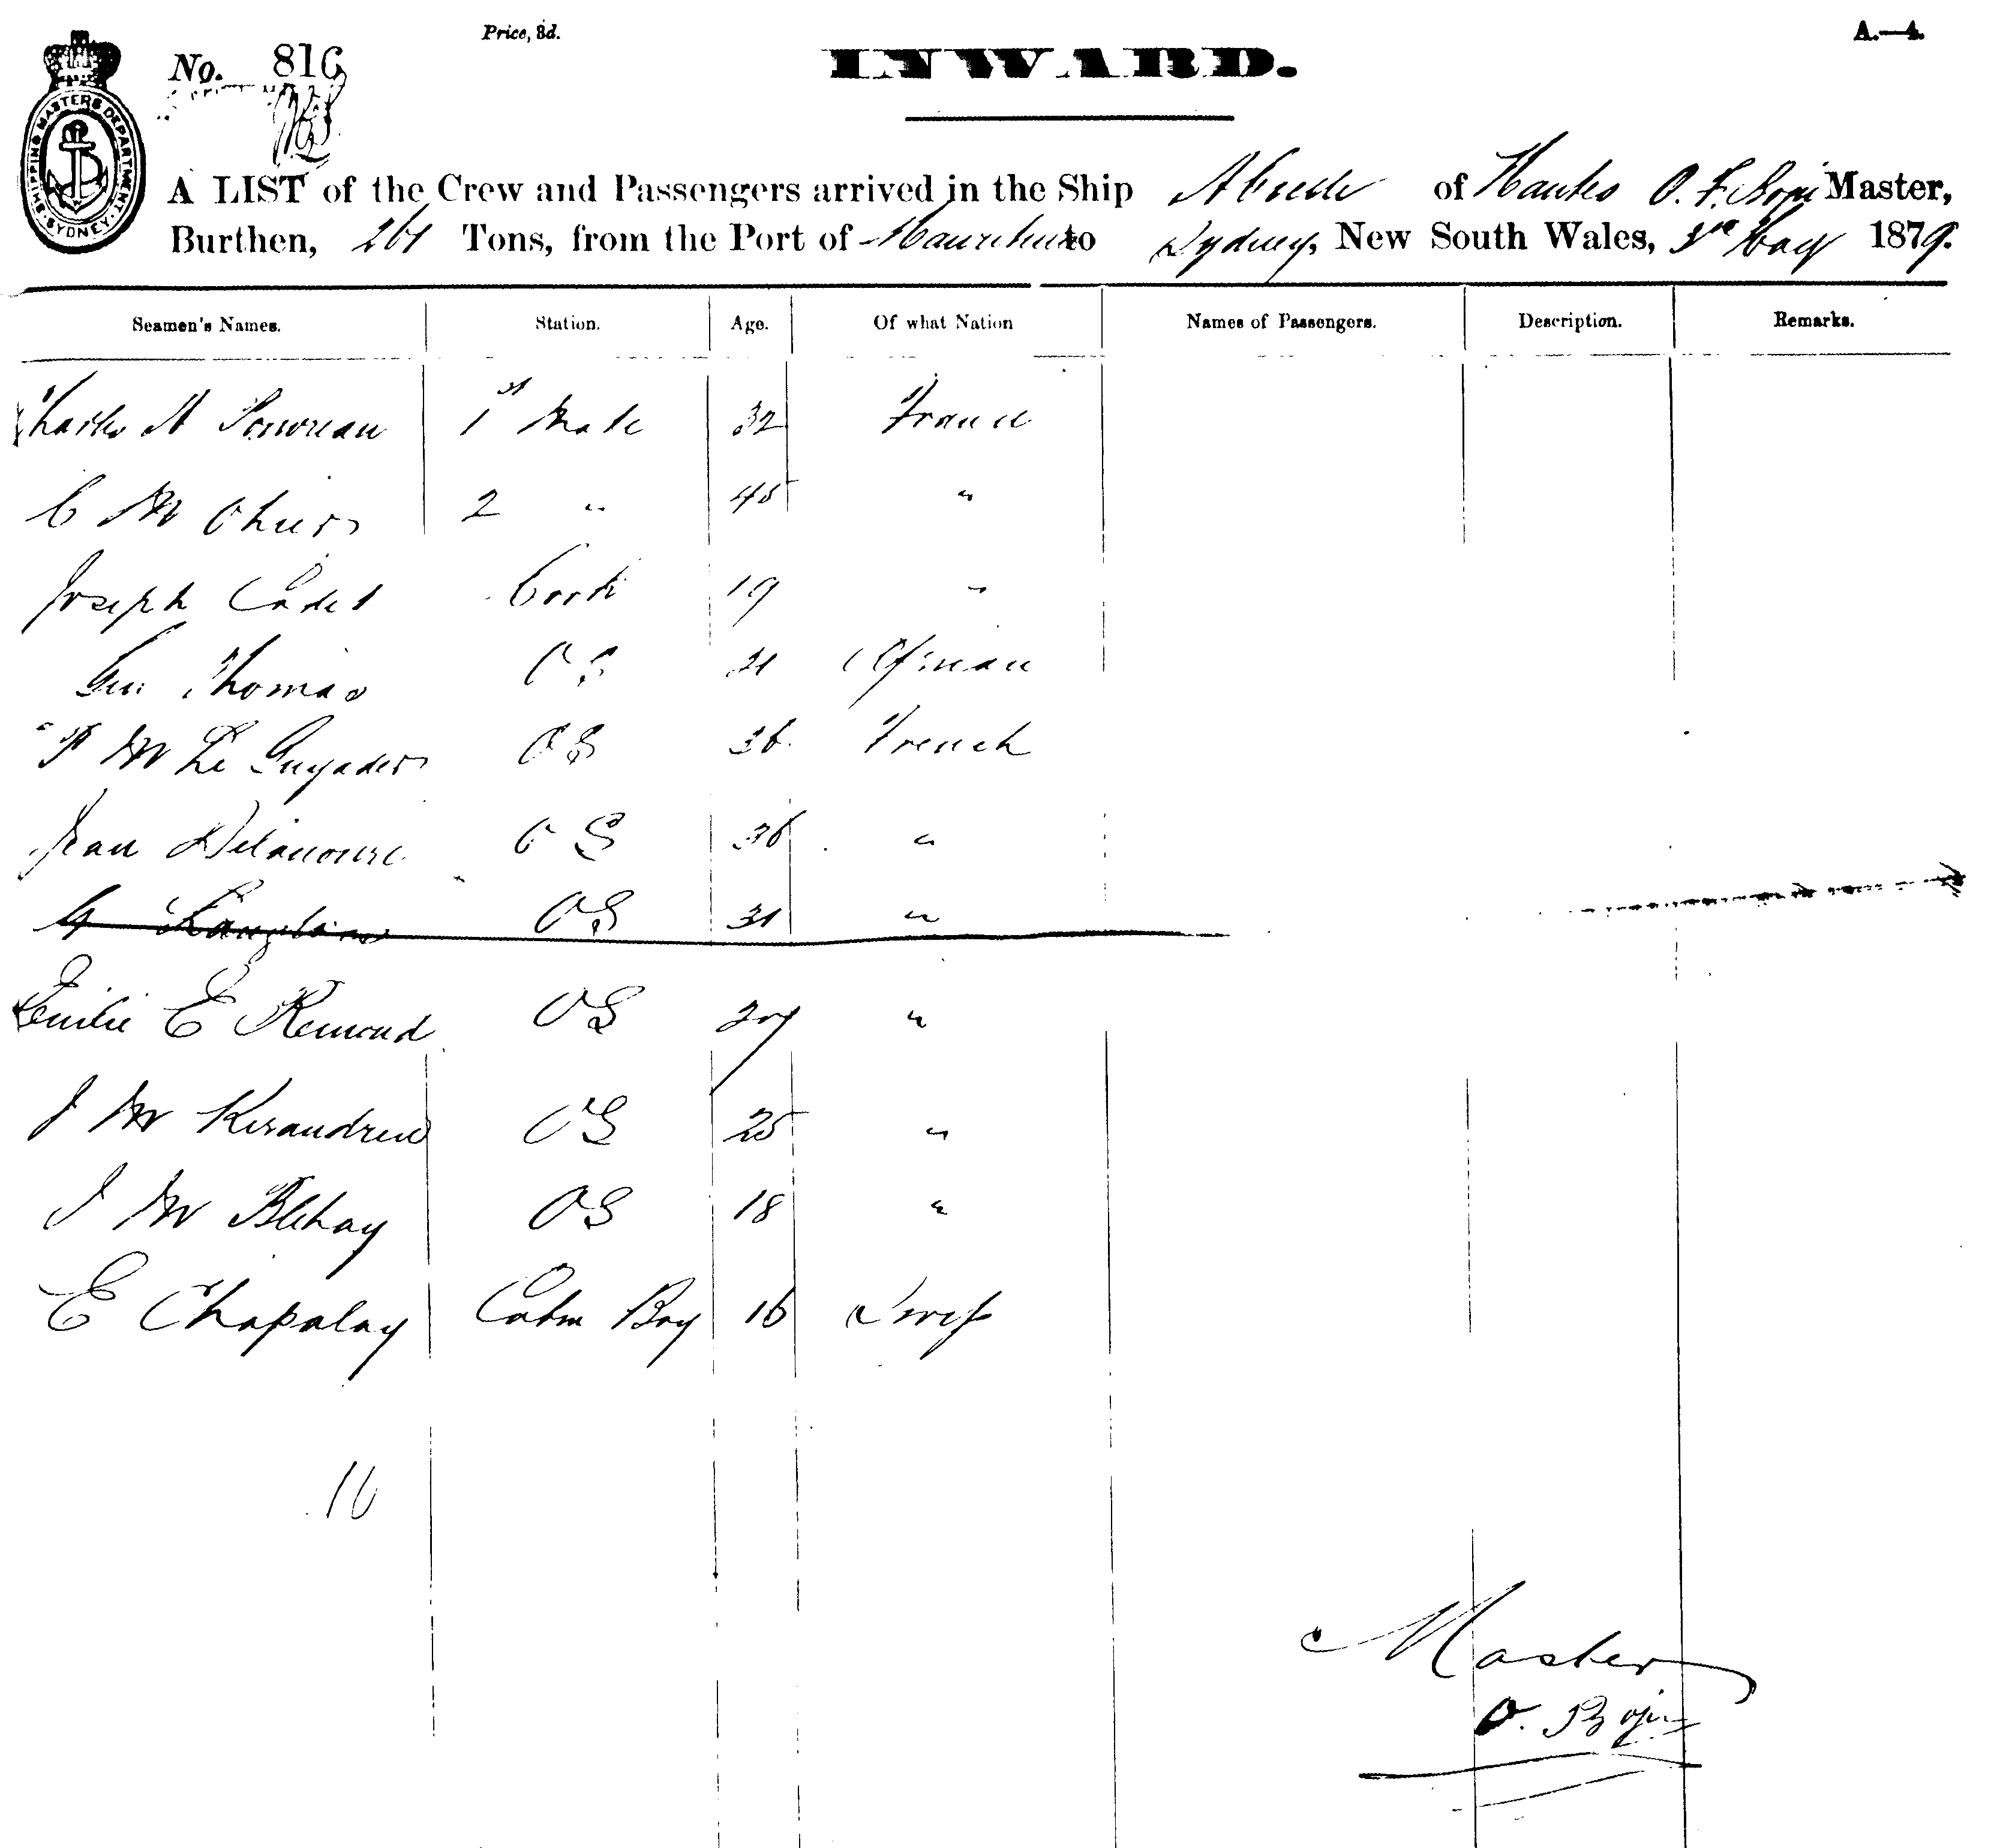 Price, 3d.
A.—4.
No. 816
INWARD.
SHIPPING MASTERS DEPARTMENT. SYDNEY.
A LIST of the Crew and Passengers arrived in the Ship of Nantes Master,
Burthen, 261 Tons, from the Port of Mauritius to Sydney, New South Wales, 3rd May 1879.
Seamen's Names. Station. Age. Of what Nation Names of Passengers. Description. Remarks.
Charles A 1st Mate 32 France
C M 2 " 45 "
Joseph Cadet Cook 19 "
Thomas O S 21 African
M Le Guyader O S 36 French
Jean O S 36 "
O S 31 "
Emilie E Remond O S 27 "
J M Kerandren O S 25 "
J M Blehay O S 18 "
E Chapalay Cabin Boy 16 Swiss
10
Master